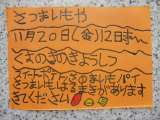 さつまいもや
11月20日(金)12時〜
くまのきのきょうしつ
スイートポテト さつまいもパイ
さつまいもはるまきがあります
きてくださいね